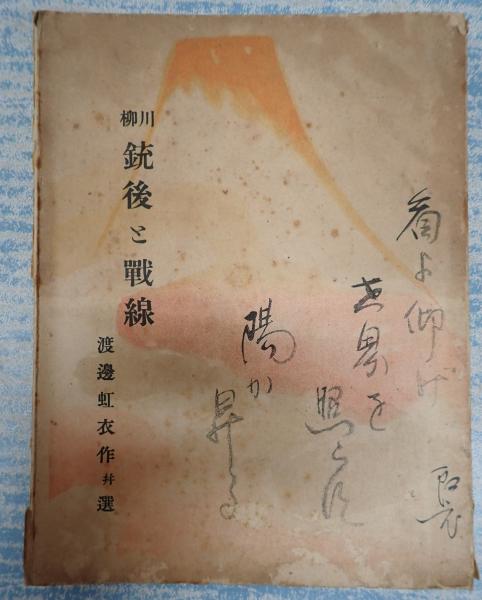 川柳
銃後と戰線
渡邊虹衣作幷選
よ仰げ
世界を
照らす
陽が
昇る
虹衣